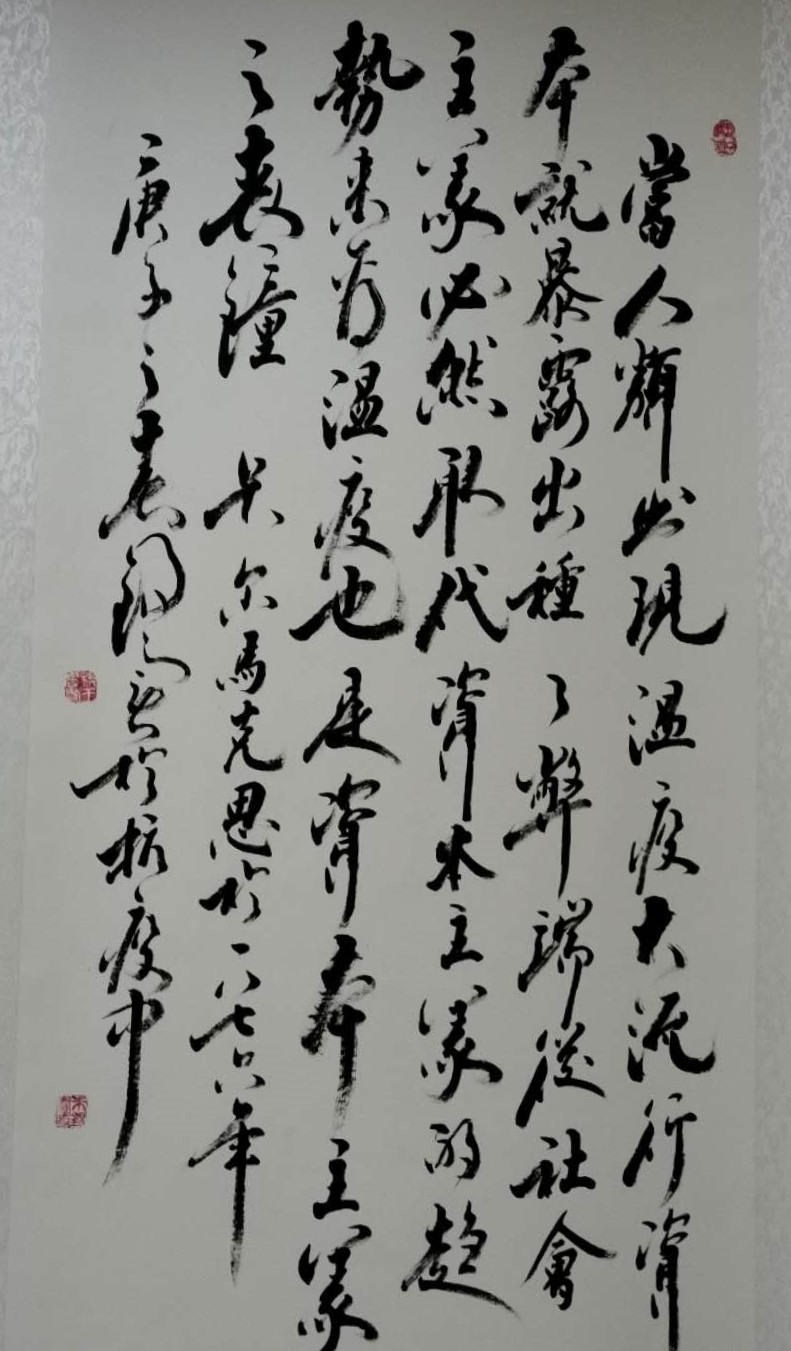 當人類出現温疫大流行資
本就暴露出種了弊端從社會
主義必然取代資本主義的趋
勢来看温疫也是資本主義
之喪鐘 卡尔馬克思於一八七六年
庚子之春 於抗疫中